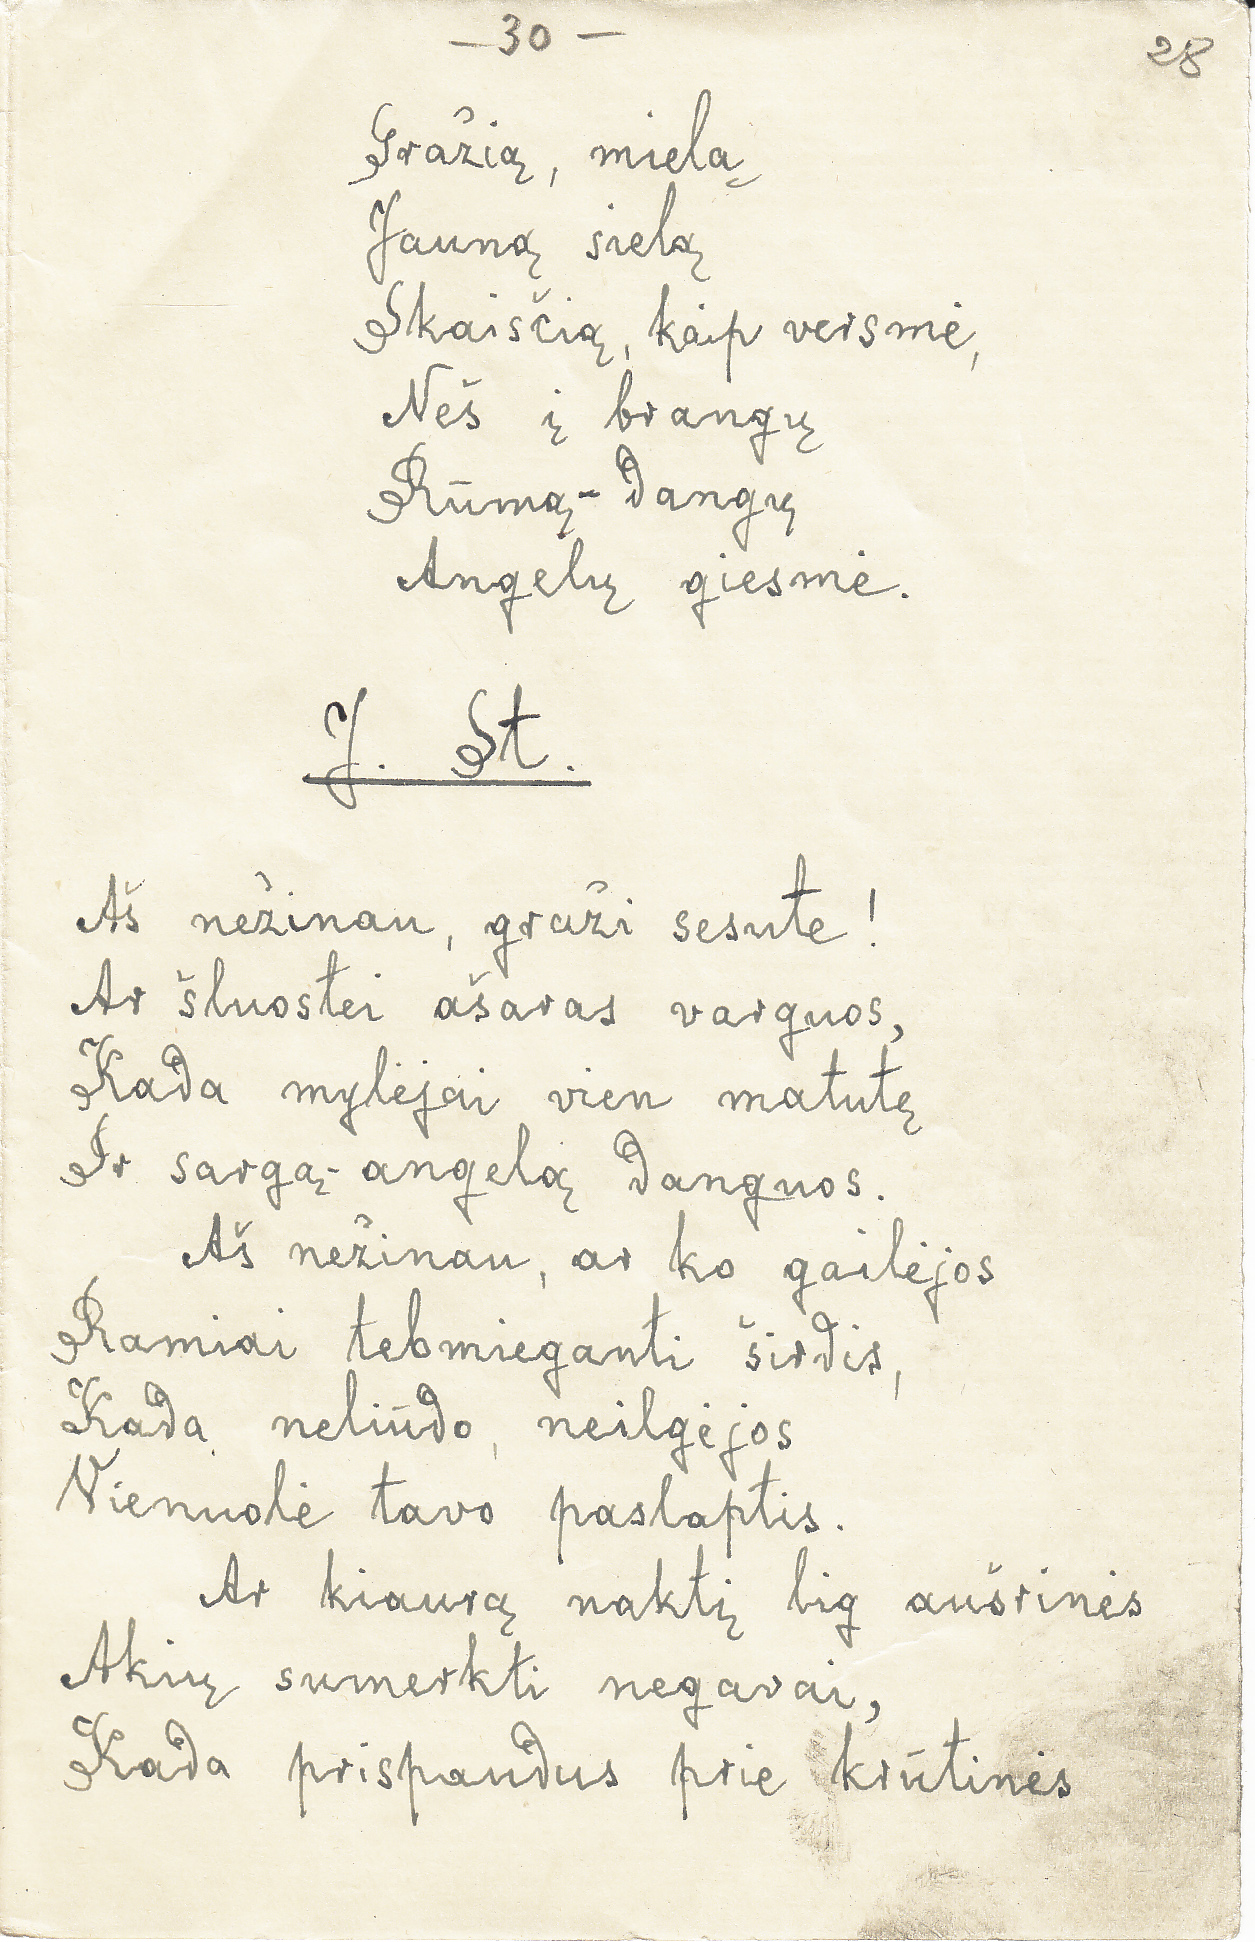 — 30 —
28
Gražią, mielą
Jauną sielą
Skaisčią, kaip versmė,
Neš į brangų
Rūmą-dangų
Angelų giesmė.
J. St.
Aš nežinau, graži sesute!
Ar šluostei ašaras varguos,
Kada mylėjai vien matutę
Ir sargą-angelą danguos.
Aš nežinau, ar ko gailėjos
Ramiai tebmieganti širdis,
Kada neliūdo, neilgėjos
Vienuolė tavo paslaptis.
Ar kiaurą naktį lig aušrinės
Akių sumerkti negavai,
Kada prispaudus prie krūtinės